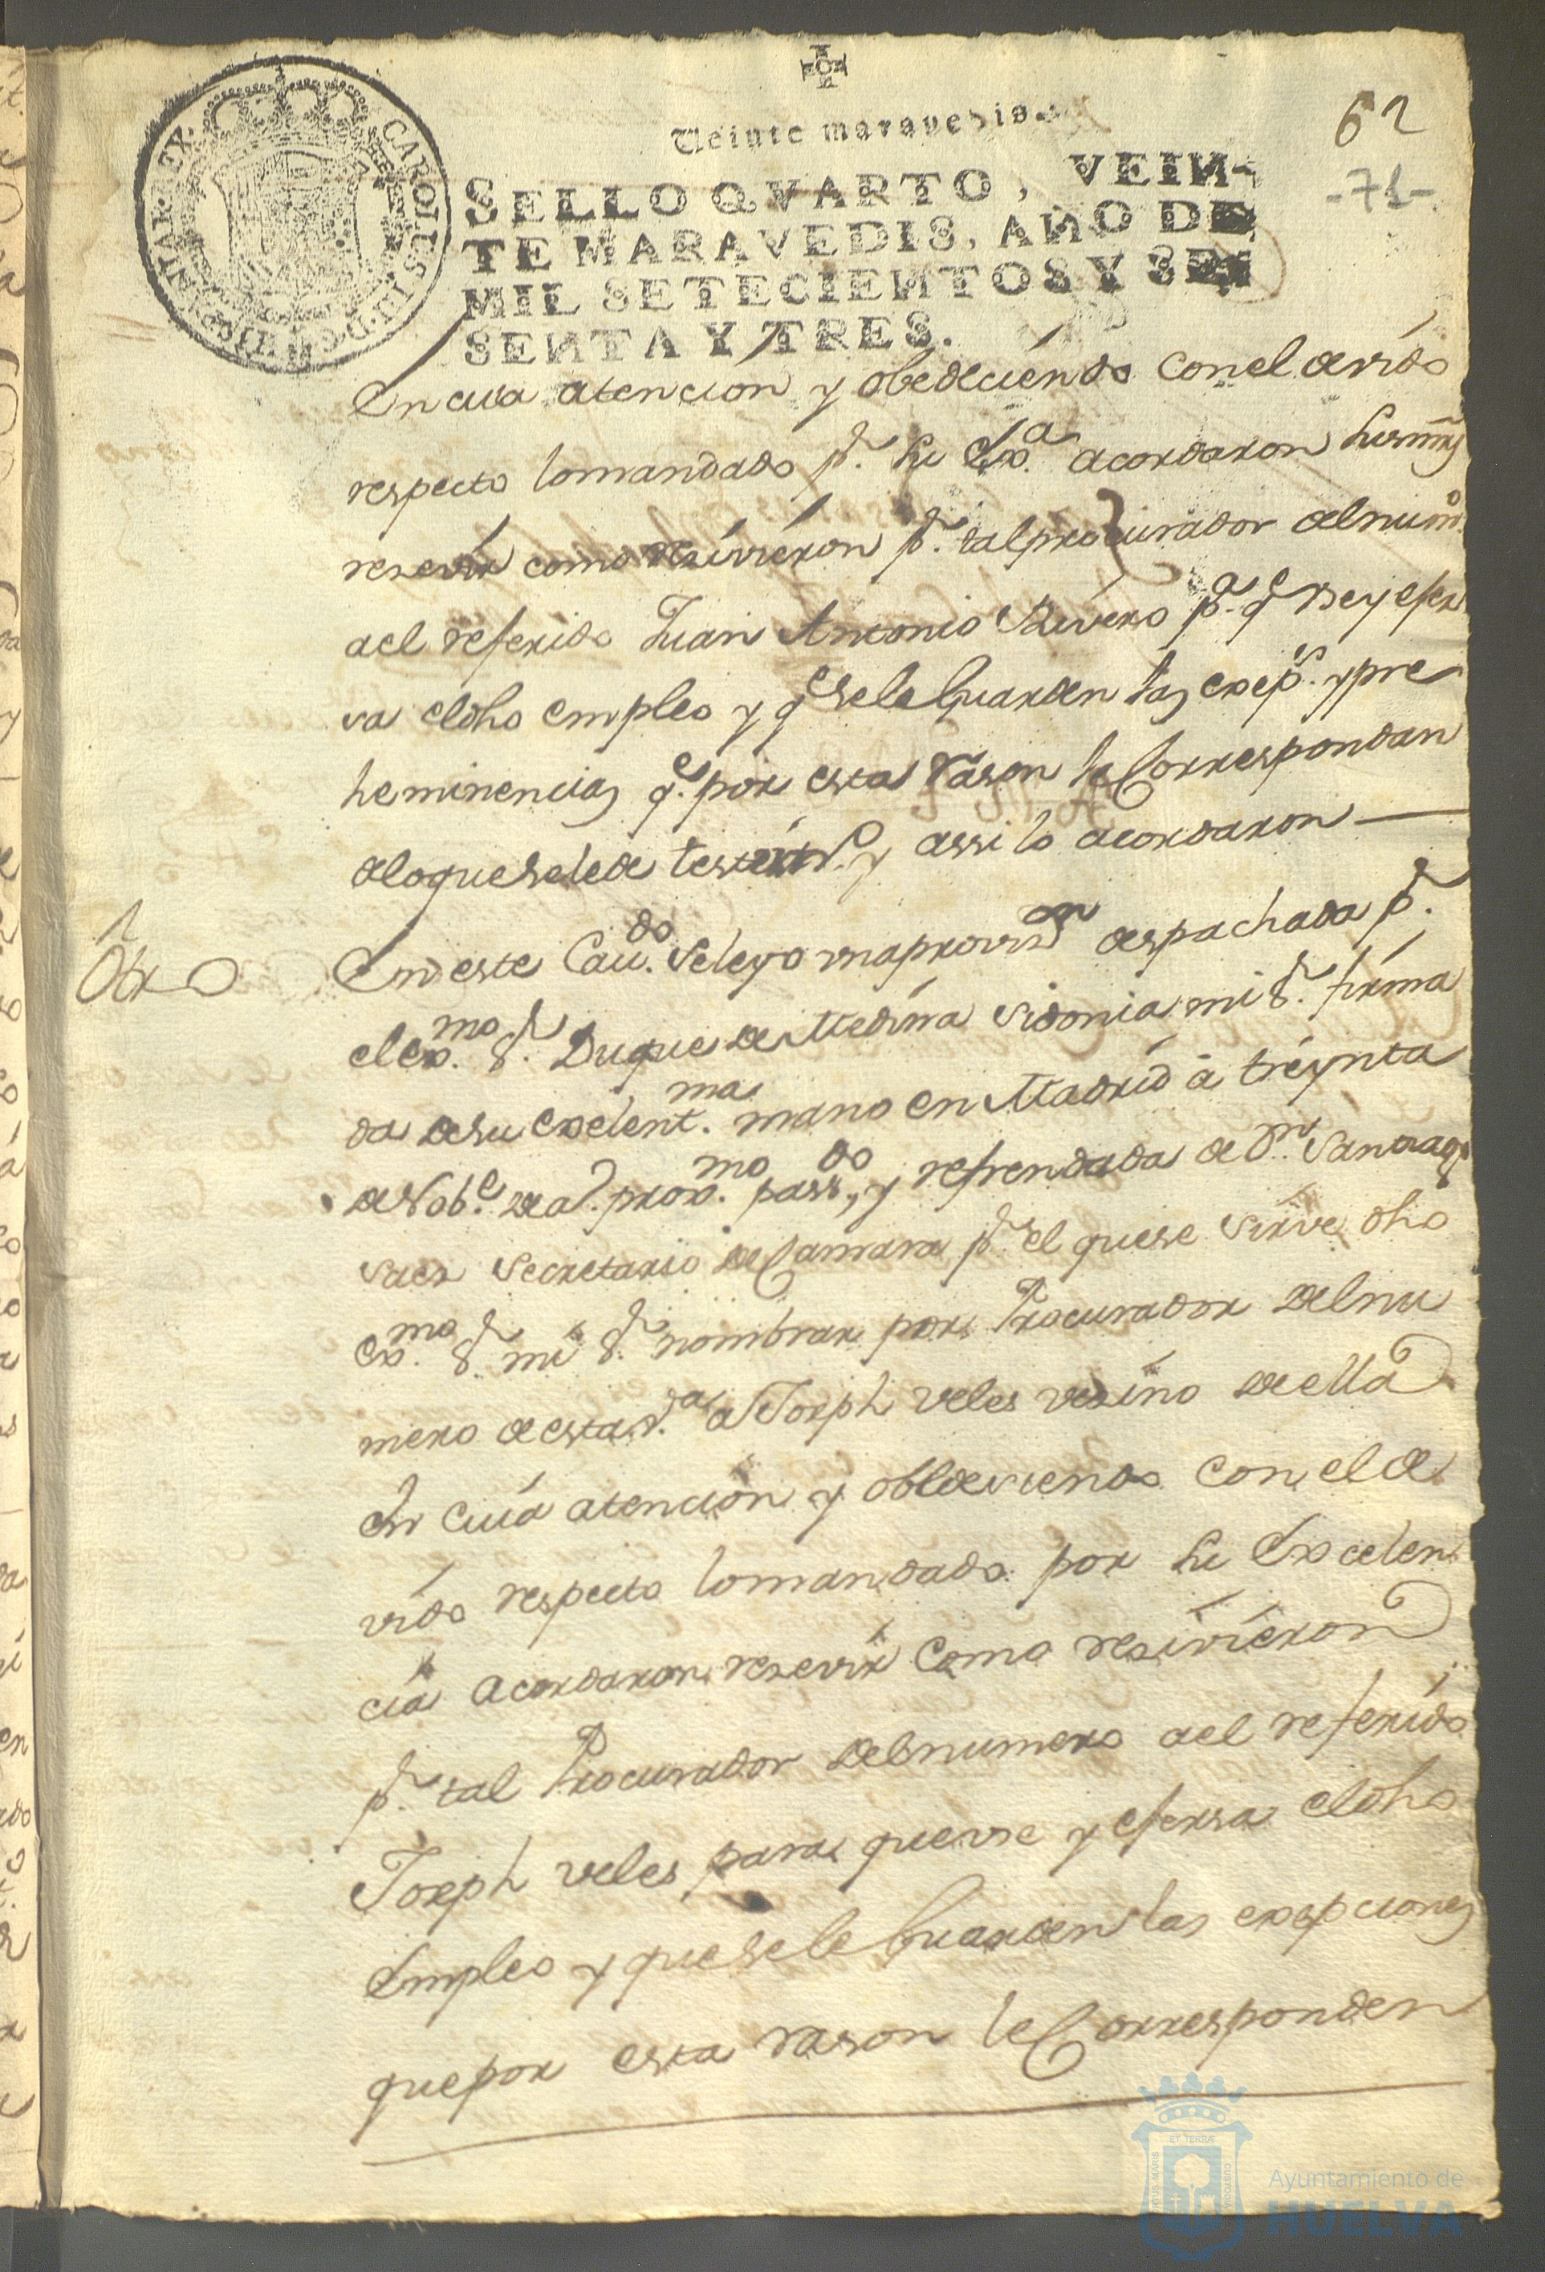 Veinte maravedis.
62
-71-
CAROLUS III. D. G. HISPANIAR. REX.
SELLO QVARTO, VEIN-
TE MARAVEDIS, AÑO DE
MIL SETECIENTOS Y SE-
SENTA Y TRES.
En cuia atencion y obedeciendo con el devido
respecto lo mandado pr. su Exa. acordaron sus mrds
resevir como resivieron pr. tal procurador del numo.
a el referido Juan Antonio Rivero pa. qe use y efer
sa el dho empleo y qe se le Guarden las exeps. y pre
heminencias qe. por esta rason le Correspondan
de lo que se le de testimo. y assi lo acordaron
Otro
En este Cavdo. se leyo una provisn despachada pr.
el Exmo. Sr. Duque de Medina Sidonia mi Sr. firma
da de su Exelentma. mano en Madrid à treynta
de Nobe. de a. proxmo. passdo, y refrendada de Dn. Santiago
Saez Secretario de Camara pr. el que se sirve dho
Exmo. Sr. mi Sr. nombrar por Procurador del nu
mero de esta va. a Joseph Veles vesino de ella
En cuia atencion y obedesiendo con el de
vido respecto lo mandado por su Excelen
cia acordaron resevir como resivieron
pr. tal Procurador del numero a el referido
Joseph Veles para que use y efersa el dho
Empleo y que se le Guarden las exepciones
que por esta rason le Corresponden
ET TERRÆ
Ayuntamiento de
HUELVA